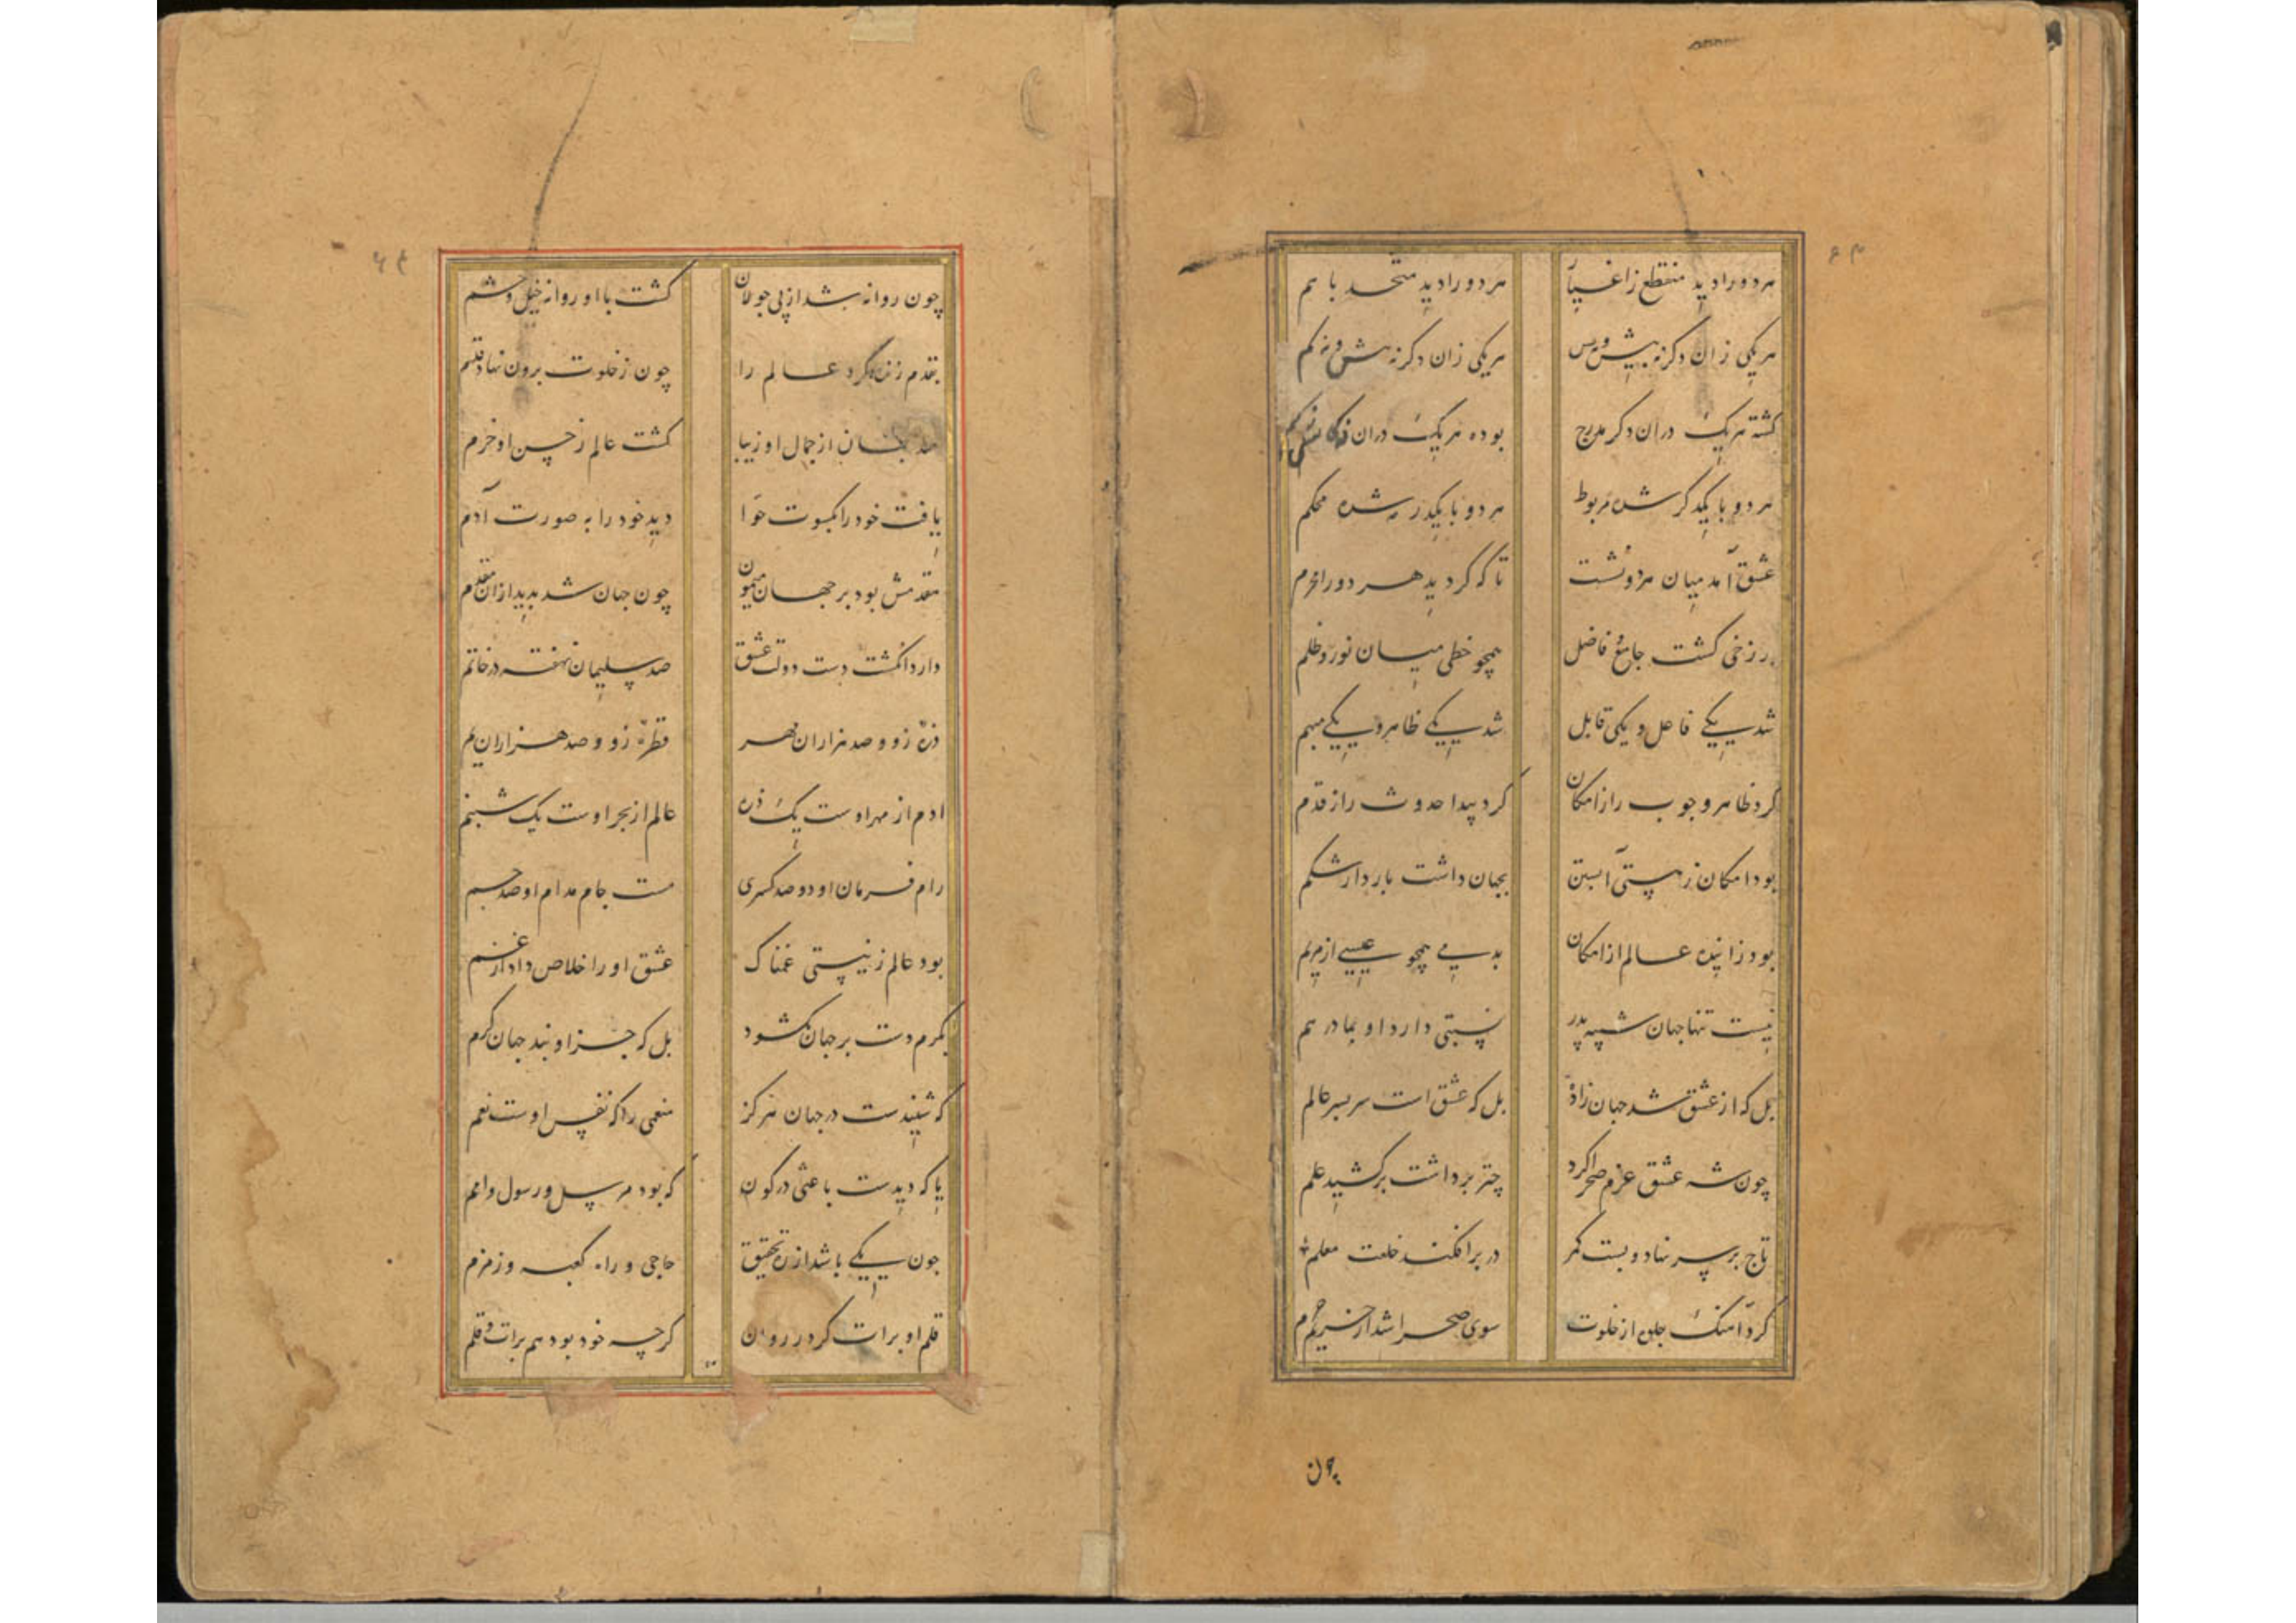 هر دو را دید منقطع ز اغیار هر دو را دید متحد با هم
هر یکی زان دگر نه بیش و نه پس هر یکی زان دگر نه بیش و نه کم
گشته هر یک در آن دگر مدرج بوده هر یک در آن
هر دو با یکدگر شده مربوط هر دو با یکدگر شده محکم
عشق آمد میان هر دو نشست تا که گردید هر دو را محرم
برزخی گشت جامع فاضل همچو خطی میان نور و ظلم
شد یکی فاعل و یکی قابل شد یکی ظاهر و یکی مبهم
کرد ظاهر وجوب را ز امکان کرد پیدا حدوث را ز قدم
بود امکان ز هستی آبستن بجهان داشت باردار شکم
بود زاینده عالم از امکان بدمی همچو عیسی از مریم
نیست تنها جهان شبیه پدر نسبتی دارد او بمادر هم
بل که از عشق شد جهان زاده بل که عشق است سربسر عالم
چون شه عشق عزم صحرا کرد چتر برداشت برکشید علم
تاج بر سر نهاد و بست کمر در بر افکند خلعت معلم
کرد آهنگ جلوه از خلوت سوی صحرا شد از حریم حرم
چون
چون روانه شد از پی جولان گشت با او روانه خیل و حشم
بقدم زنده کرد عالم را چون ز خلوت برون نهاد قدم
شد جهان از جمال او زیبا گشت عالم ز حسن او خرم
یافت خود را بکسوت حوا دید خود را به صورت آدم
مقدمش بود بر جهان میمون چون جهان شد پدید از آن مقدم
دارد انگشت دست دولت عشق صد سلیمان نهفته در خاتم
ذره زو و صد هزاران مهر قطره زو و صد هزاران یم
آدم از مهر اوست یک ذره عالم از بحر اوست یک شبنم
رام فرمان او دو صد کسری مست جام مدام او صد جم
بود عالم ز نیستی غمناک عشق او را خلاص داد از غم
بکرم دست بر جهان بگشود بل که جز او ندید جهان کرم
که شنیدست در جهان هرگز منعمی را که نفس اوست نعم
یا که دیدست باعثی در کون که بود مرسل و رسول و امم
چون یکی باشد از ره تحقیق حاجی و راه کعبه و زمزم
قلم او برات کرد روان گرچه خود بود هم برات و قلم